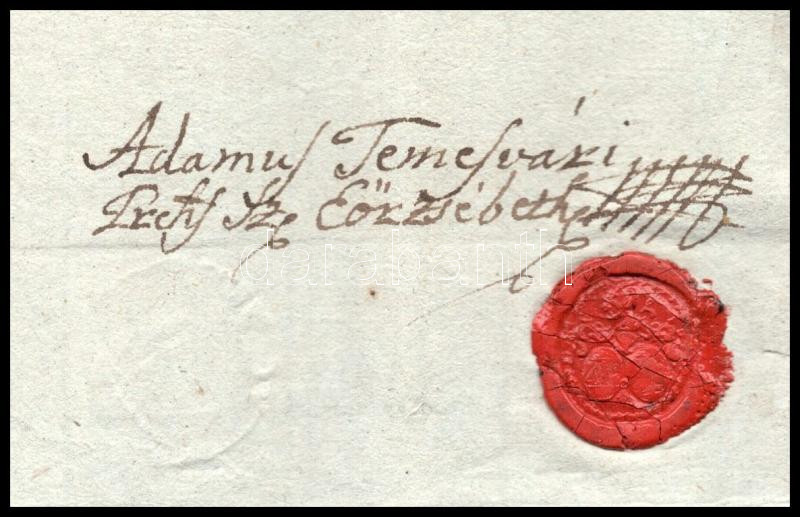 Adamus Temesvári
Sz. Eörzsébeth
darabanth